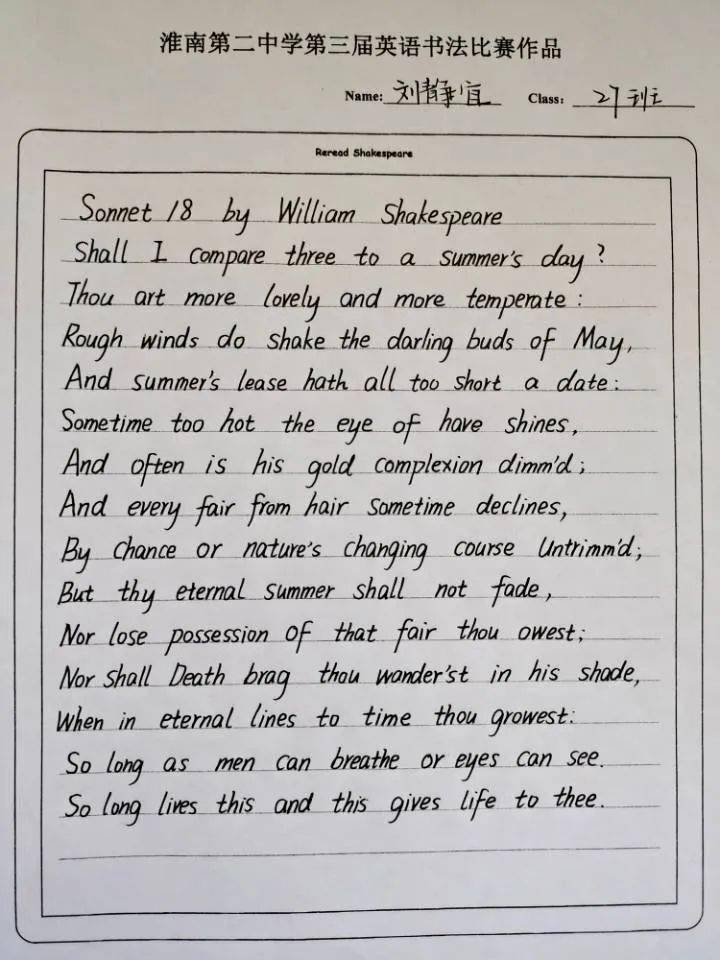 淮南第二中学第三届英语书法比赛作品
Name: 刘静宜 Class: 27班
Reread Shakespeare
Sonnet 18 by William Shakespeare
Shall I compare three to a summer's day?
Thou art more lovely and more temperate:
Rough winds do shake the darling buds of May,
And summer's lease hath all too short a date:
Sometime too hot the eye of have shines,
And often is his gold complexion dimm'd;
And every fair from hair sometime declines,
By chance or nature's changing course Untrimm'd;
But thy eternal summer shall not fade,
Nor lose possession of that fair thou owest;
Nor shall Death brag thou wander'st in his shade,
When in eternal lines to time thou growest:
So long as men can breathe or eyes can see.
So long lives this and this gives life to thee.